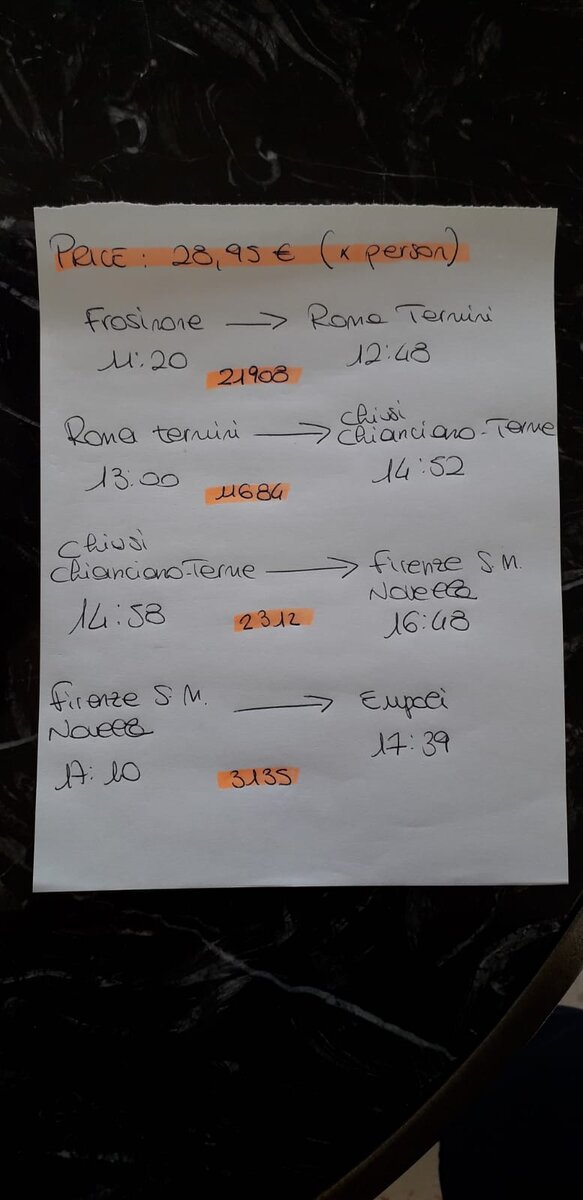 PRICE: 28,95 € (x person)
Frosinone → Roma Termini
11:20 21908 12:48
Roma termini → Chiusi Chianciano-Terme
13:00 11684 14:52
Chiusi Chianciano-Terme → Firenze S.M. Novella
14:58 2312 16:48
Firenze S.M. Novella → Empoli
17:10 3135 17:39